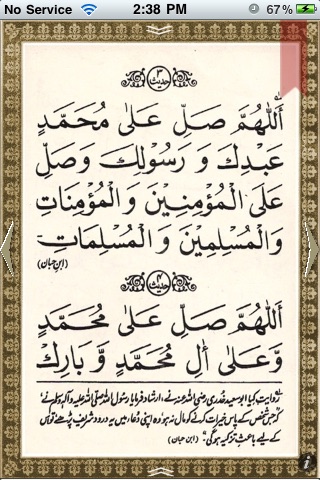 No Service 2:38 PM 67%
حديث ٣
اَللّٰهُمَّ صَلِّ عَلٰى مُحَمَّدٍ
عَبْدِكَ وَ رَسُوْلِكَ وَصَلِّ
عَلَى الْمُؤْمِنِيْنَ وَ الْمُؤْمِنَاتِ
وَالْمُسْلِمِيْنَ وَ الْمُسْلِمَاتِ
(ابن حبان)
حديث ٤
اَللّٰهُمَّ صَلِّ عَلٰى مُحَمَّدٍ
وَّعَلٰى اٰلِ مُحَمَّدٍ وَّ بَارِكْ
روایت کیا ابوسعید خدری رضی اللہ عنہ نے، ارشاد فرمایا رسول اللہ صلی اللہ علیہ وآلہ وسلم نے
کہ جس شخص کے پاس خیرات کرنے کو مال نہ ہو وہ اپنی دعا میں یہ درود شریف پڑھے تو اس
کے لیے باعث تزکیہ ہوگی" (ابن حبان)
i